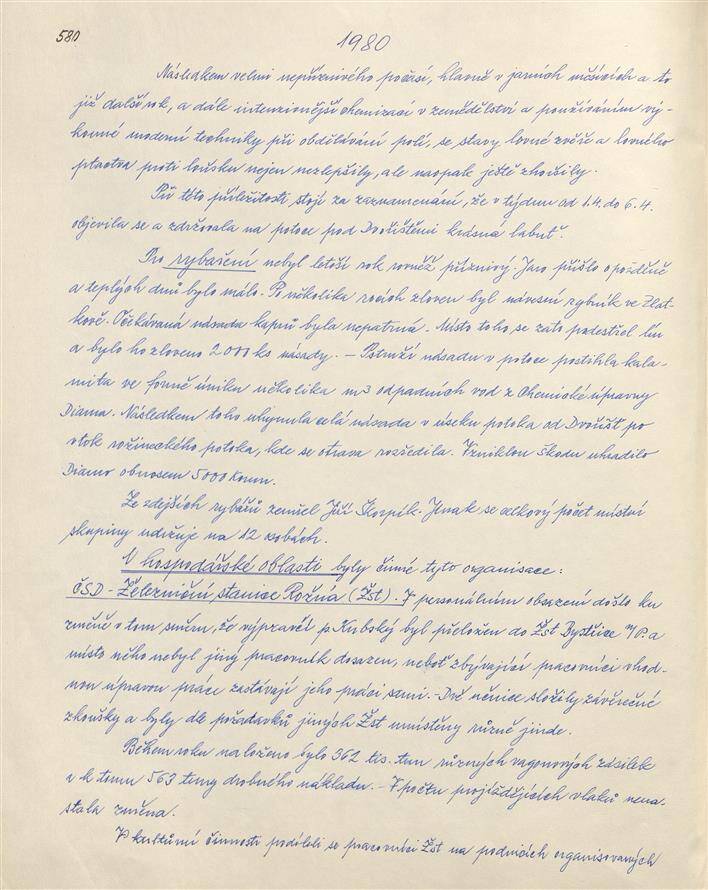 580
1980
Následkem velmi nepříznivého počasí, hlavně v jarních měsících a to
již další rok, a dále intenzionější chemizací v zemědělství a používáním vý-
konné moderní techniky při obdělávání polí, se stavy lovné zvěře a lovného
ptactva proti loňsku nejen nezlepšily, ale naopak ještě zhoršily.
Při této příležitosti stojí za zaznamenání, že v týdnu od 1.4. do 6.4.
objevila se a zdržovala na potoce pod Dvořištěmi krásná labuť.
Pro rybaření nebyl letoší rok rovněž příznivý. Jaro přišlo opožděně
a teplých dnů bylo málo. Po několika rocích zloven byl návesní rybník ve Zlat-
kově. Očekávaná násada kaprů byla nepatrná. Místo toho, se zato podestřel lín
a bylo ho zloveno 2000 ks násady. - Pstruží násadu v potoce postihla kala-
mita ve formě úniku několika m3 odpadních vod z Chemické úpravny
Diama. Následkem toho uhynula celá násada v úseku potoka od Dvořišť po
vtok rožineckého potoka, kde se otrava rozředila. Vzniklou škodu uhradilo
Diamo obnosem 5000 korun.
Ze zdejších rybářů zemřel Jiří Skorpík. Jinak se celkový počet místní
skupiny udržuje na 12 osobách.
V hospodářské oblasti byly činné tyto organisace:
ČSD - Železniční stanice Rožná (Žst). V personálním obsazení došlo ku
změně v tom směru, že výpravčí p. Kubský byl přeložen do Žst Bystřice n/P. a
místo něho nebyl jiný pracovník dosazen, neboť zbývající pracovníci vhod-
nou úpravou práce zastávají jeho práci sami. - Dvě učnice složily závěrečné
zkoušky a byly dle požadavků jiných Žst umístěny různě jinde.
Během roku naloženo bylo 362 tis. tun různých vagonových zásilek
a k tomu 563 tuny drobného nákladu. - V počtu projíždějících vlaků nena-
stala změna.
V kulturní činnosti podíleli se pracovníci Žst na podnicích organisovaných